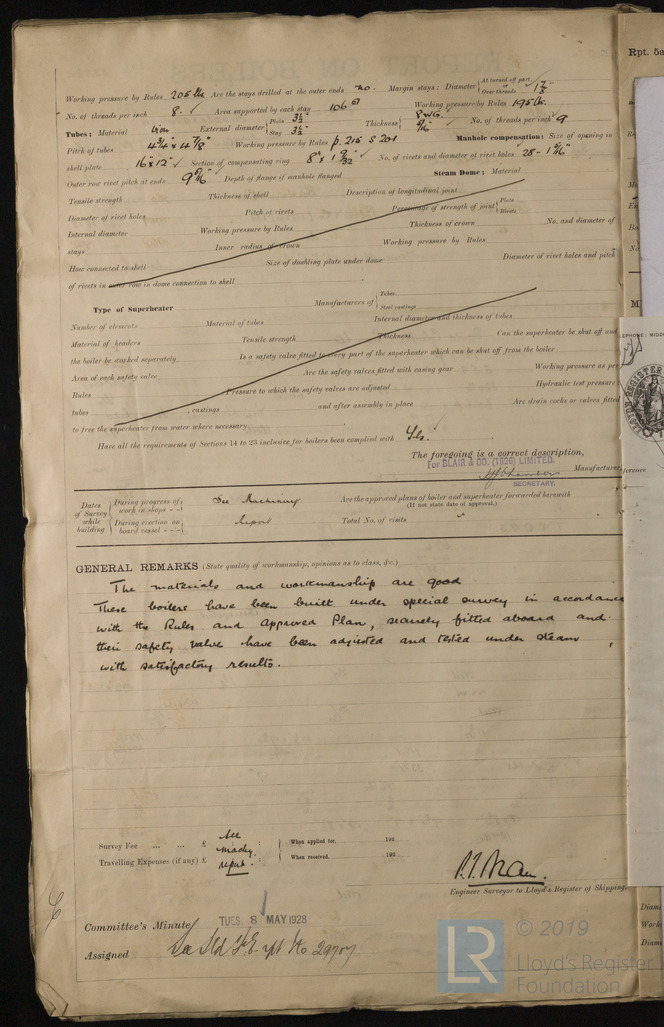 Working pressure by Rules 205 lb Are the stays drilled at the outer ends no. Margin stays: Diameter { At turned off part or Over threads
No. of threads per inch 8. ✓ Area supported by each stay 106 Working pressure by Rules 195 lb.
Tubes: Material Iron External diameter { Plain 3½" Stay 3½" Thickness { 8 WG. 5/16" No. of threads per inch 9
Pitch of tubes 4¾" x 4⅞" Working pressure by Rules p. 215 s 201 Manhole compensation: Size of opening in
shell plate 16" x 12" ✓ Section of compensating ring 8" x 1 9/32 No. of rivets and diameter of rivet holes 28 - 1 5/16"
Outer row rivet pitch at ends 9 Depth of flange if manhole flanged Steam Dome: Material
Tensile strength Thickness of shell Description of longitudinal joint
Diameter of rivet holes Pitch of rivets Percentage of strength of joint { Plate Rivets
Internal diameter Working pressure by Rules Thickness of crown No. and diameter of
stays Inner radius of crown Working pressure by Rules
How connected to shell Size of doubling plate under dome Diameter of rivet holes and pitch
of rivets in outer row in dome connection to shell
Type of Superheater Manufacturers of { Tubes Steel castings
Number of elements Material of tubes Internal diameter and thickness of tubes
Material of headers Tensile strength Thickness Can the superheater be shut off and
the boiler be worked separately Is a safety valve fitted to every part of the superheater which can be shut off from the boiler
Area of each safety valve Are the safety valves fitted with easing gear Working pressure as per
Rules Pressure to which the safety valves are adjusted Hydraulic test pressure
tubes , castings and after assembly in place Are drain cocks or valves fitted
to free the superheater from water where necessary
Have all the requirements of Sections 14 to 23 inclusive for boilers been complied with Yes.
The foregoing is a correct description,
For BLAIR & CO. (1926) LIMITED.
Manufacturer
SECRETARY.
Dates of Survey while building { During progress of work in shops - - See Machinery Are the approved plans of boiler and superheater forwarded herewith
(If not state date of approval.)
During erection on board vessel - - - Report Total No. of visits
GENERAL REMARKS (State quality of workmanship, opinions as to class, &c.)
The materials and workmanship are good
These boilers have been built under special survey in accordance
with the Rules and Approved Plan, securely fitted aboard and
their safety valve have been adjusted and tested under steam,
with satisfactory results.
Survey Fee ... ... £ See When applied for, 192
Travelling Expenses (if any) £ machy. report. When received, 192
Engineer Surveyor to Lloyd's Register of Shipping.
Committee's Minute TUES. 8 MAY 1928
Assigned
Rpt. 5a
© 2019
LR
Lloyd's Register
Foundation